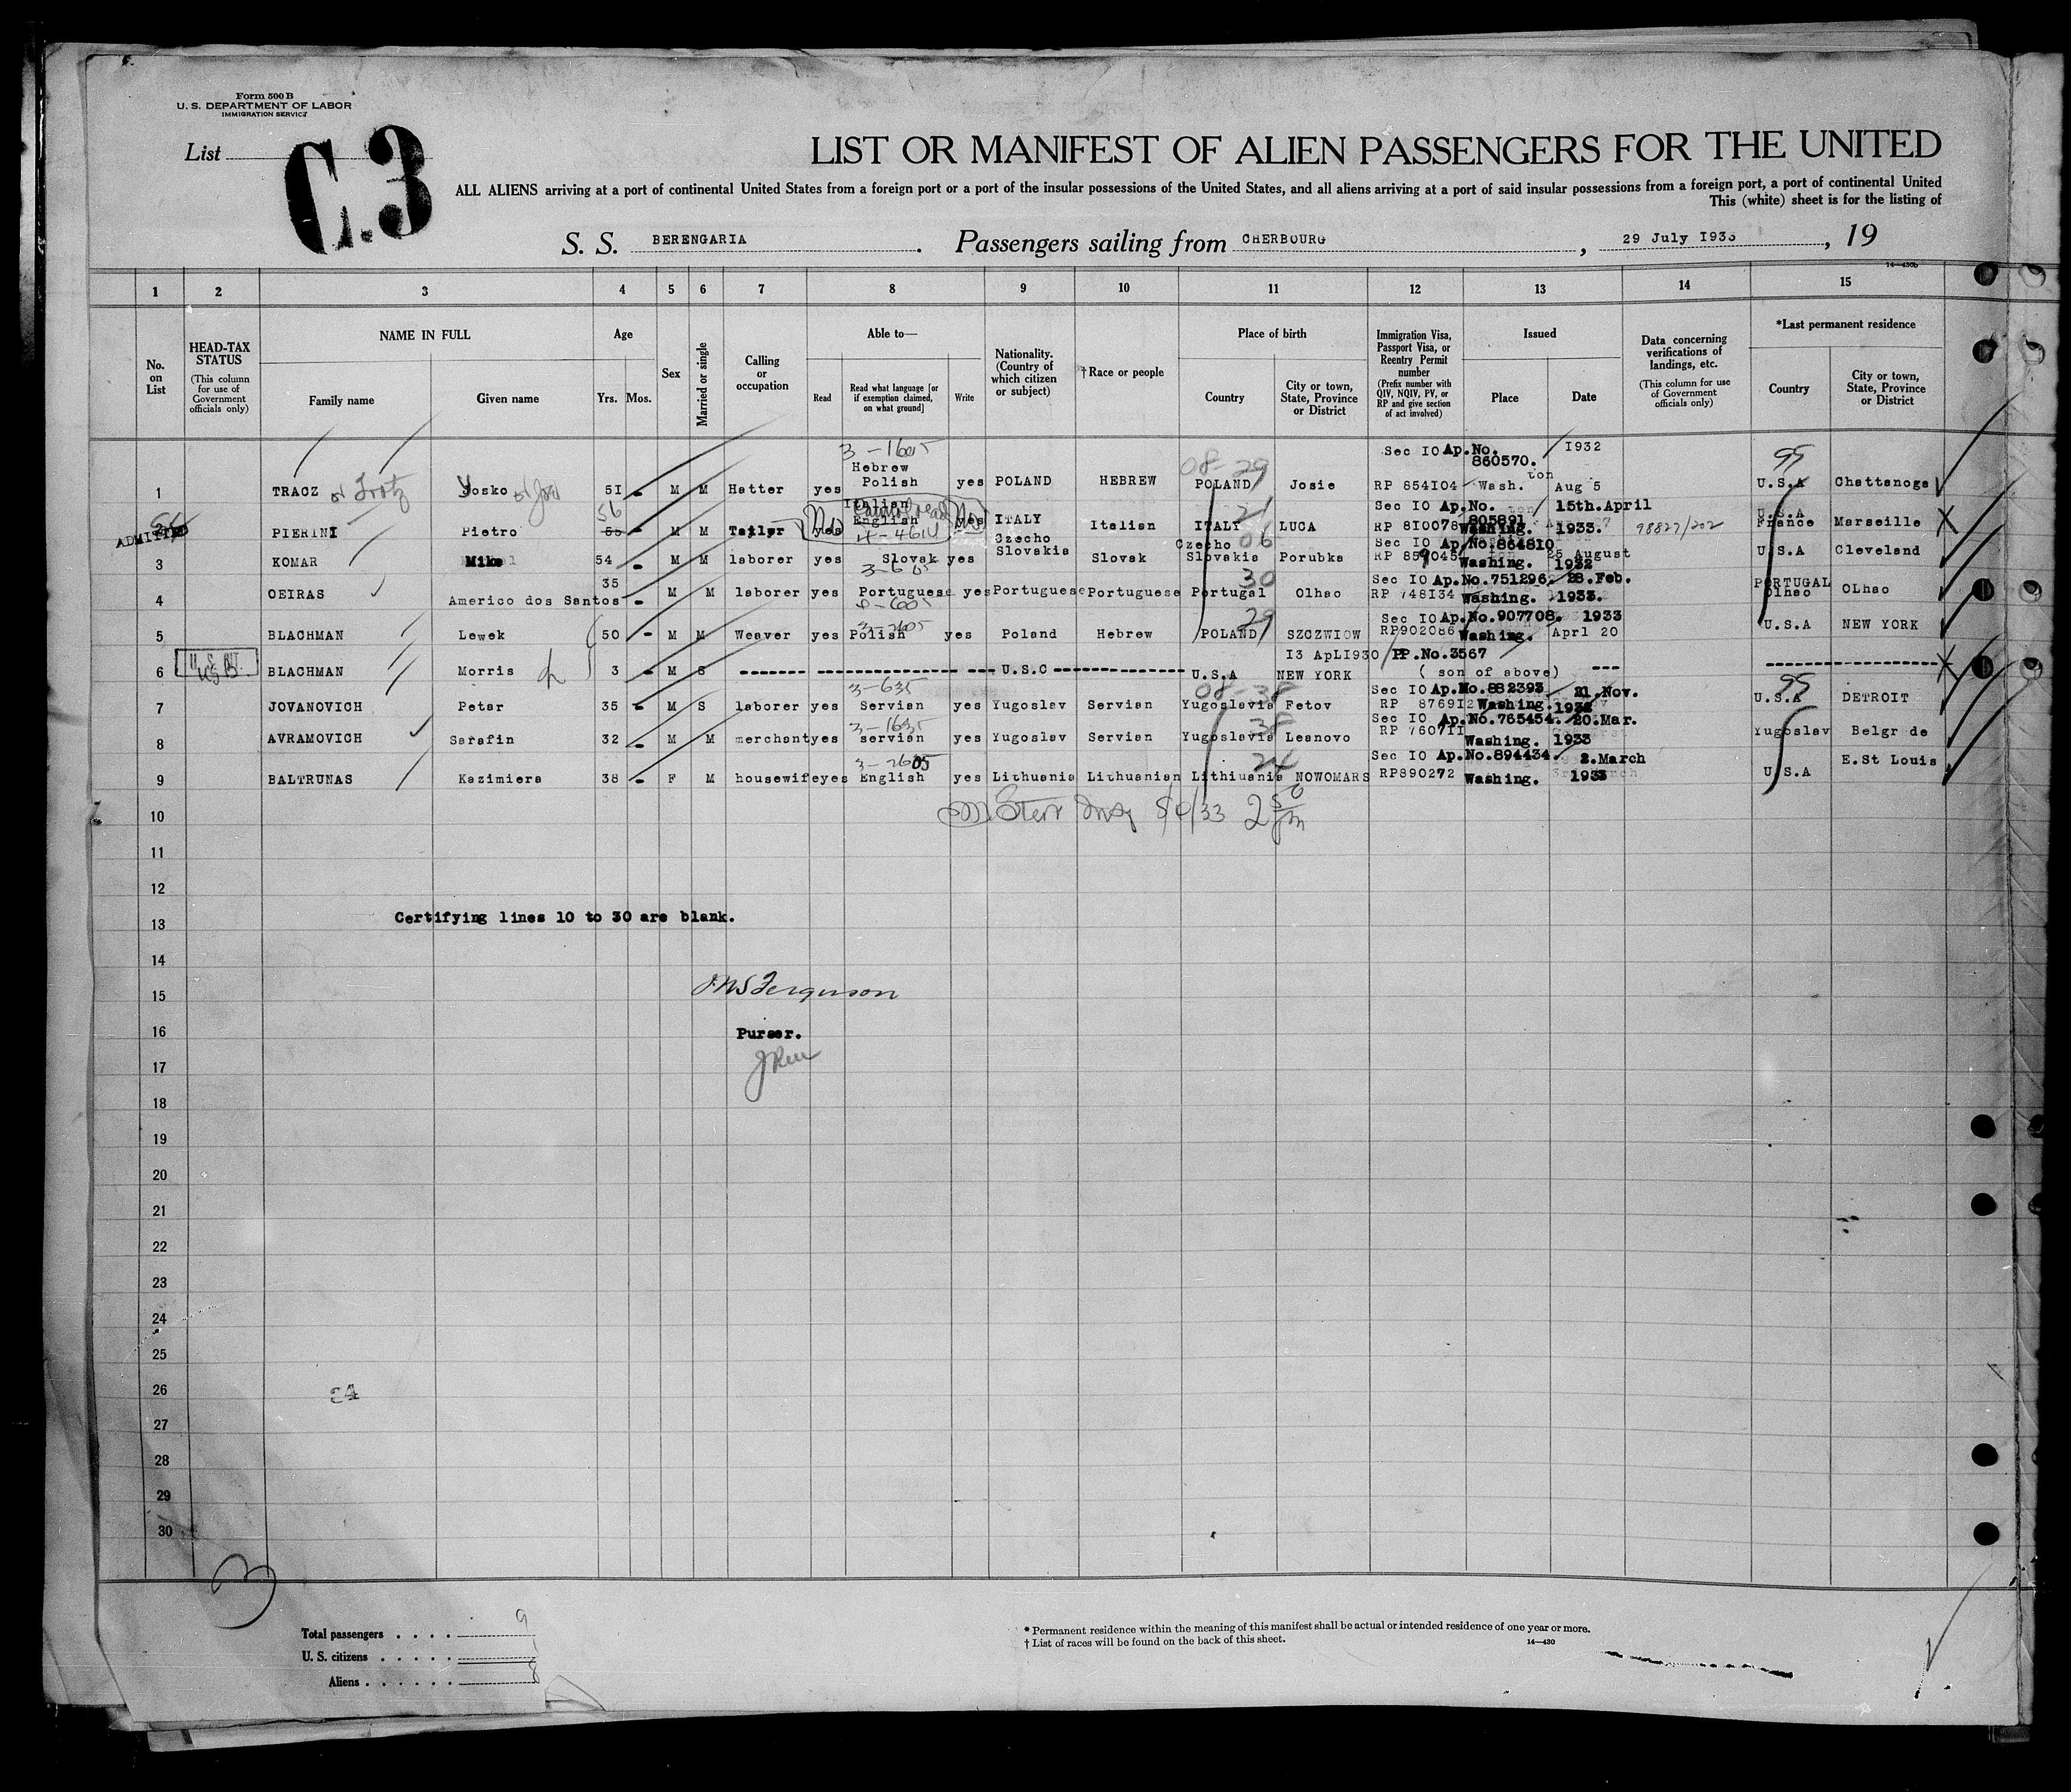 Form 500 B
U. S. DEPARTMENT OF LABOR
IMMIGRATION SERVICE
List
C.3
LIST OR MANIFEST OF ALIEN PASSENGERS FOR THE UNITED
ALL ALIENS arriving at a port of continental United States from a foreign port or a port of the insular possessions of the United States, and all aliens arriving at a port of said insular possessions from a foreign port, a port of continental United
This (white) sheet is for the listing of
S. S. BERENGARIA. Passengers sailing from CHERBOURG, 29 July 1933, 19
14—430b
1 2 3 4 5 6 7 8 9 10 11 12 13 14 15
No. on List
HEAD-TAX STATUS (This column for use of Government officials only)
NAME IN FULL
Family name Given name
Age
Yrs. Mos.
Sex
Married or single
Calling or occupation
Able to—
Read Read what language [or if exemption claimed, on what ground] Write
Nationality. (Country of which citizen or subject)
†Race or people
Place of birth
Country City or town, State, Province or District
Immigration Visa, Passport Visa, or Reentry Permit number (Prefix number with QIV, NQIV, PV, or RP and give section of act involved)
Issued
Place Date
Data concerning verifications of landings, etc. (This column for use of Government officials only)
*Last permanent residence
Country City or town, State, Province or District
3-1605 Sec I0 Ap.No. 860570. I932
1 TRACZ or Trotz Yosko or Joe 5I - M M Hatter yes Hebrew Polish yes POLAND HEBREW 08-29 POLAND Josie RP 854I04 Wash.ton Aug 5 99 U.S.A Chattanoga
ADMITTED 2 PIERINI Pietro 56 55 - M M Tailor yes No Italian English cannot read 4-4614 yes No ITALY Italian 21 ITALY LUCA Sec I0 Ap.No. 805891 RP 8I0078 Washing. 15th.April 1933. 98827/202 U.S.A France Marseille X
3 KOMAR Mike 54 - M M laborer yes Slovak yes Czecho Slovakia Slovak Czecho Slovakia 06 Porubka Sec I0 Ap.No.864810 Washing. 25 August 1932 U.S.A Cleveland
4 OEIRAS Americo dos Santos 35 - M M laborer yes Portuguese yes Portuguese Portuguese 30 Portugal Olhao Sec I0 Ap.No.751296 RP 748I34 Washing. 28.Feb. 1933. PORTUGAL Olhao OLhao
5 BLACHMAN Lewek 50 - M M Weaver yes 3-2605 Polish yes Poland Hebrew 29 POLAND SZCZWIOW Sec I0 Ap.No.907708. RP902086 Washing. 1933 Aprl 20 U.S.A NEW YORK
6 BLACHMAN Morris 3 - M S U.S.C U.S.A I3 ApLI930 NEW YORK PP.No.3567 ( son of above) --- X
7 JOVANOVICH Petar 35 - M S laborer 3-635 Servian yes Yugoslav Servian 08-38 Yugoslavia Fetov Sec I0 Ap.No.882393 RP 8769I2 Washing. 21.Nov. 99 U.S.A DETROIT
8 AVRAMOVICH Serafin 32 - M M merchant yes 3-1635 servian yes Yugoslav Servian 38 Yugoslavia Lesnovo Sec I0 Ap.No.765454. RP 7607II Washing. 20.Mar. 1933 Yugoslav Belgr de
9 BALTRUNAS Kazimiera 38 - F M housewife yes 3-2605 English yes Lithuania Lithuanian 24 Lithiuania NOWOMARS Sec I0 Ap.No.894434 RP890272 Washing. 2.March 1933 U.S.A E.St Louis
10
11
12
Certifying lines 10 to 30 are blank.
13
14
15
JWSFerguson
16
Purser.
17
18
19
20
21
22
23
24
25
26
27
28
29
30
3
Total passengers . . . . 9
U. S. citizens . . . . . 1
Aliens . . . . . . 8
* Permanent residence within the meaning of this manifest shall be actual or intended residence of one year or more.
† List of races will be found on the back of this sheet. 14—430